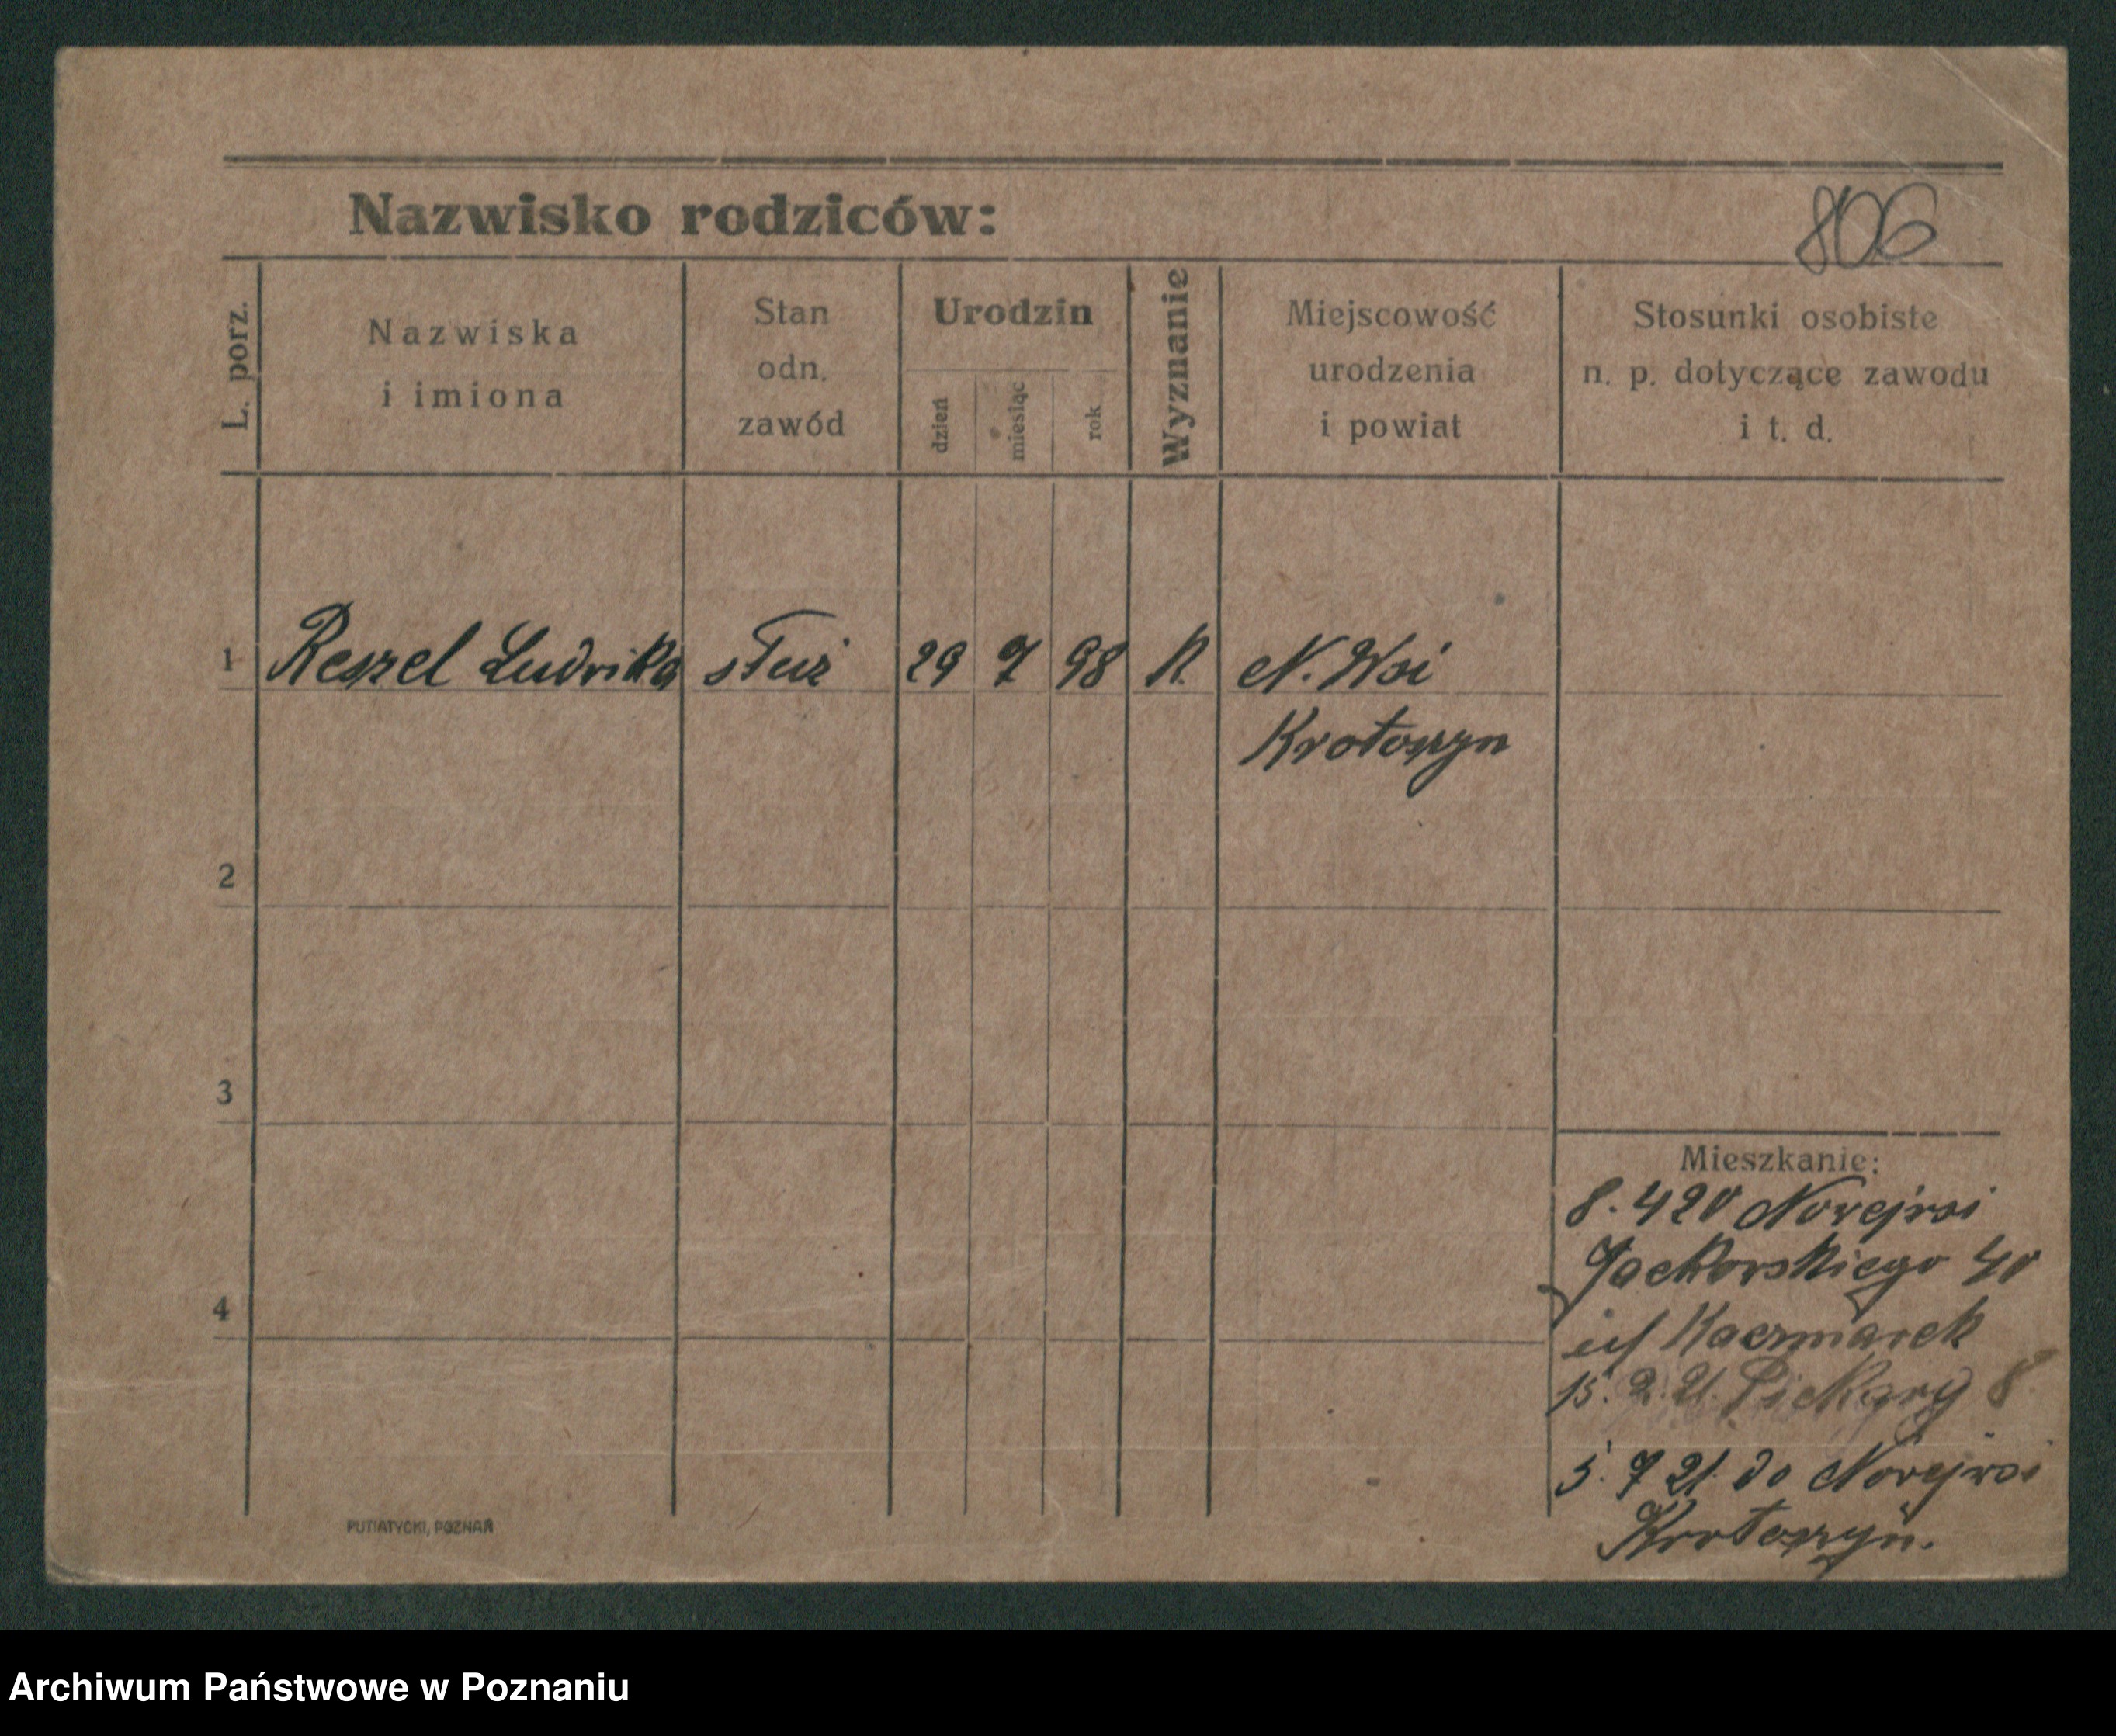 Nazwisko rodziców:
806
L. porz.
Nazwiska
i imiona
Stan
odn.
zawód
Urodzin
dzień
miesiąc
rok
Wyznanie
Miejscowość
urodzenia
i powiat
Stosunki osobiste
n. p. dotyczące zawodu
i t. d.
1 Reszel Ludwika służ 29 7 98 K. N. Wsi
Krotoszyn
2
3
4
Mieszkanie:
8. 4 20 Nowejwsi
Jackowskiego 40
Kaczmarek
15. 2. 21. Piekary 8.
5. 7 21. do Nowejwsi
Krotoszyn.
PUTIATYCKI, POZNAŃ
Archiwum Państwowe w Poznaniu